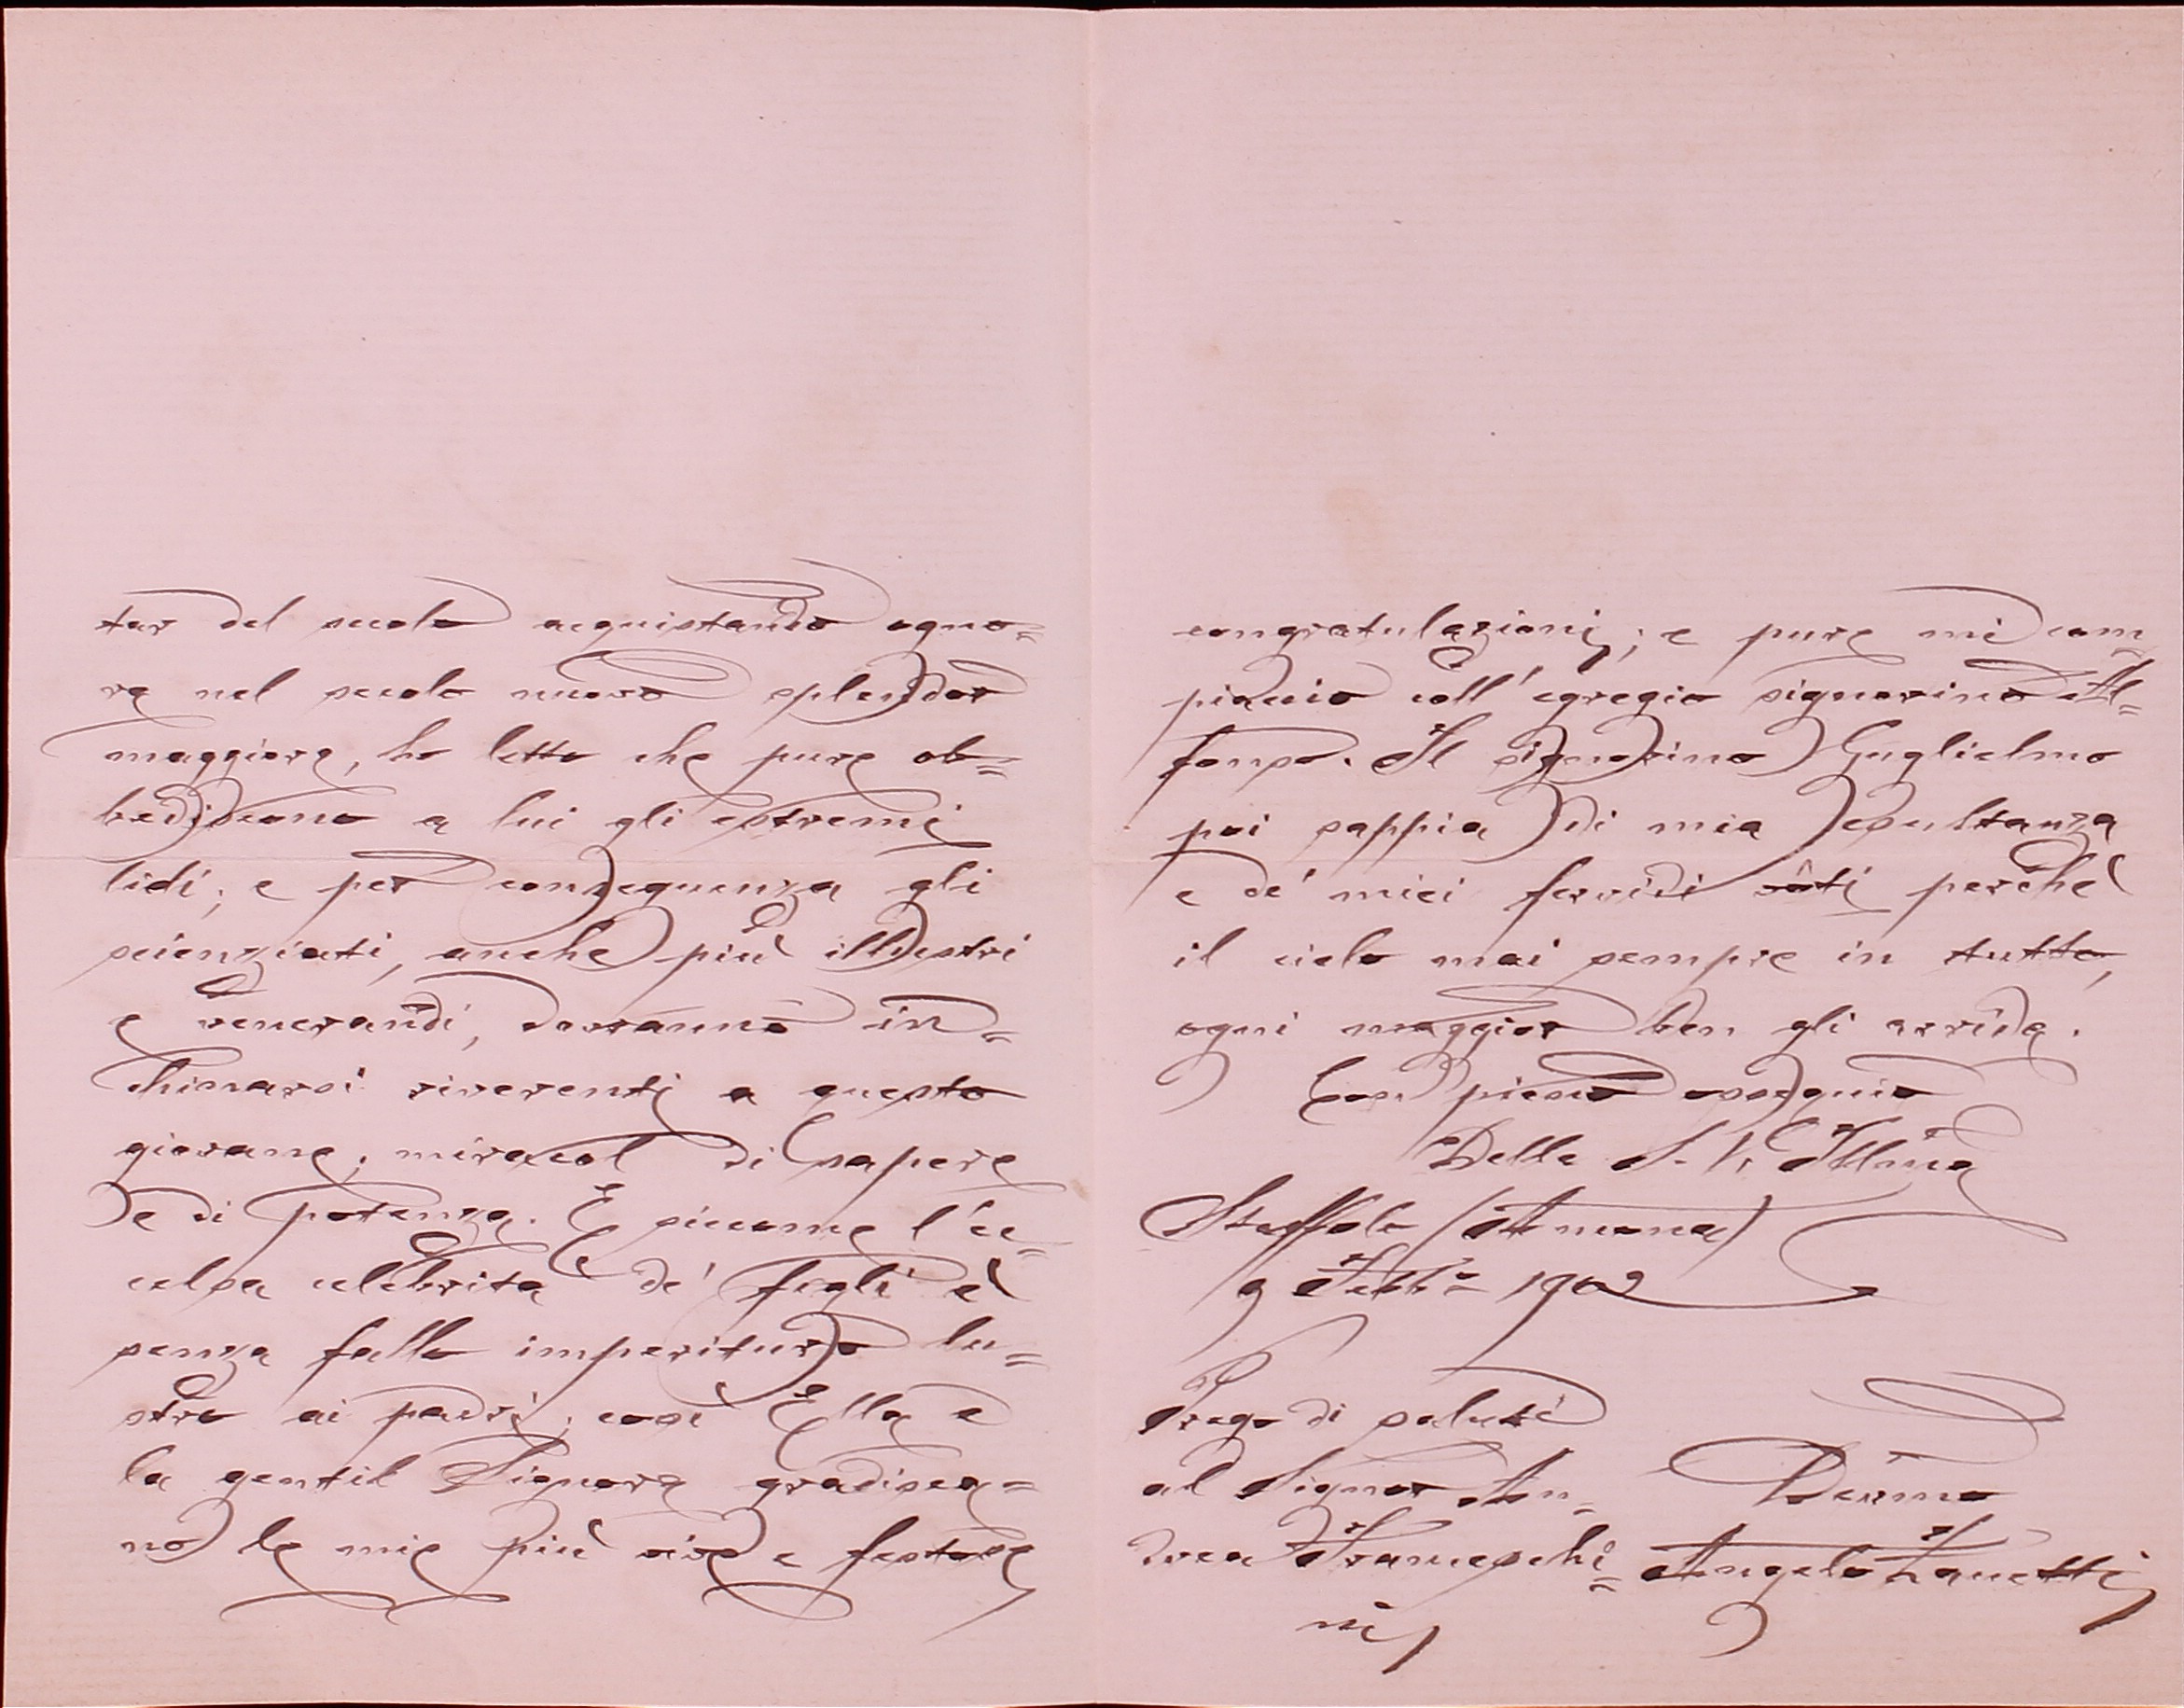 tar del secolo acquistando ogno=
ra nel secolo nuovo splendor
maggiore, ho letto che pure ob=
bediscono a lui gli estremi
lidi; e per conseguenza gli
scienziati, anche più illustri
e venerandi, dovranno in=
chinarsi riverenti a questo
giovane, miracol di sapere
e di potenza. E siccome l'ec=
celsa celebrità de' figli è
senza fallo imperituro lu=
stro ai padri; così Ella e
la gentil Signora gradisca=
no le mie più vive e festose
congratulazioni; e pure mi com
piaccio coll'egregio signorino Al=
fonso. Il signorino Guglielmo
poi sappia di mia esultanza
e de' miei fervidi vôti perchè
il cielo mai sempre in tutto,
ogni maggior ben gli arrida.
Con pieno ossequio
Della S. V. Illma
Staffolo (Ancona)
9 Febb° 1902
Prego di saluti
al Signor An=
drea Franceschi=
ni
Devmo
Angelo Zanetti